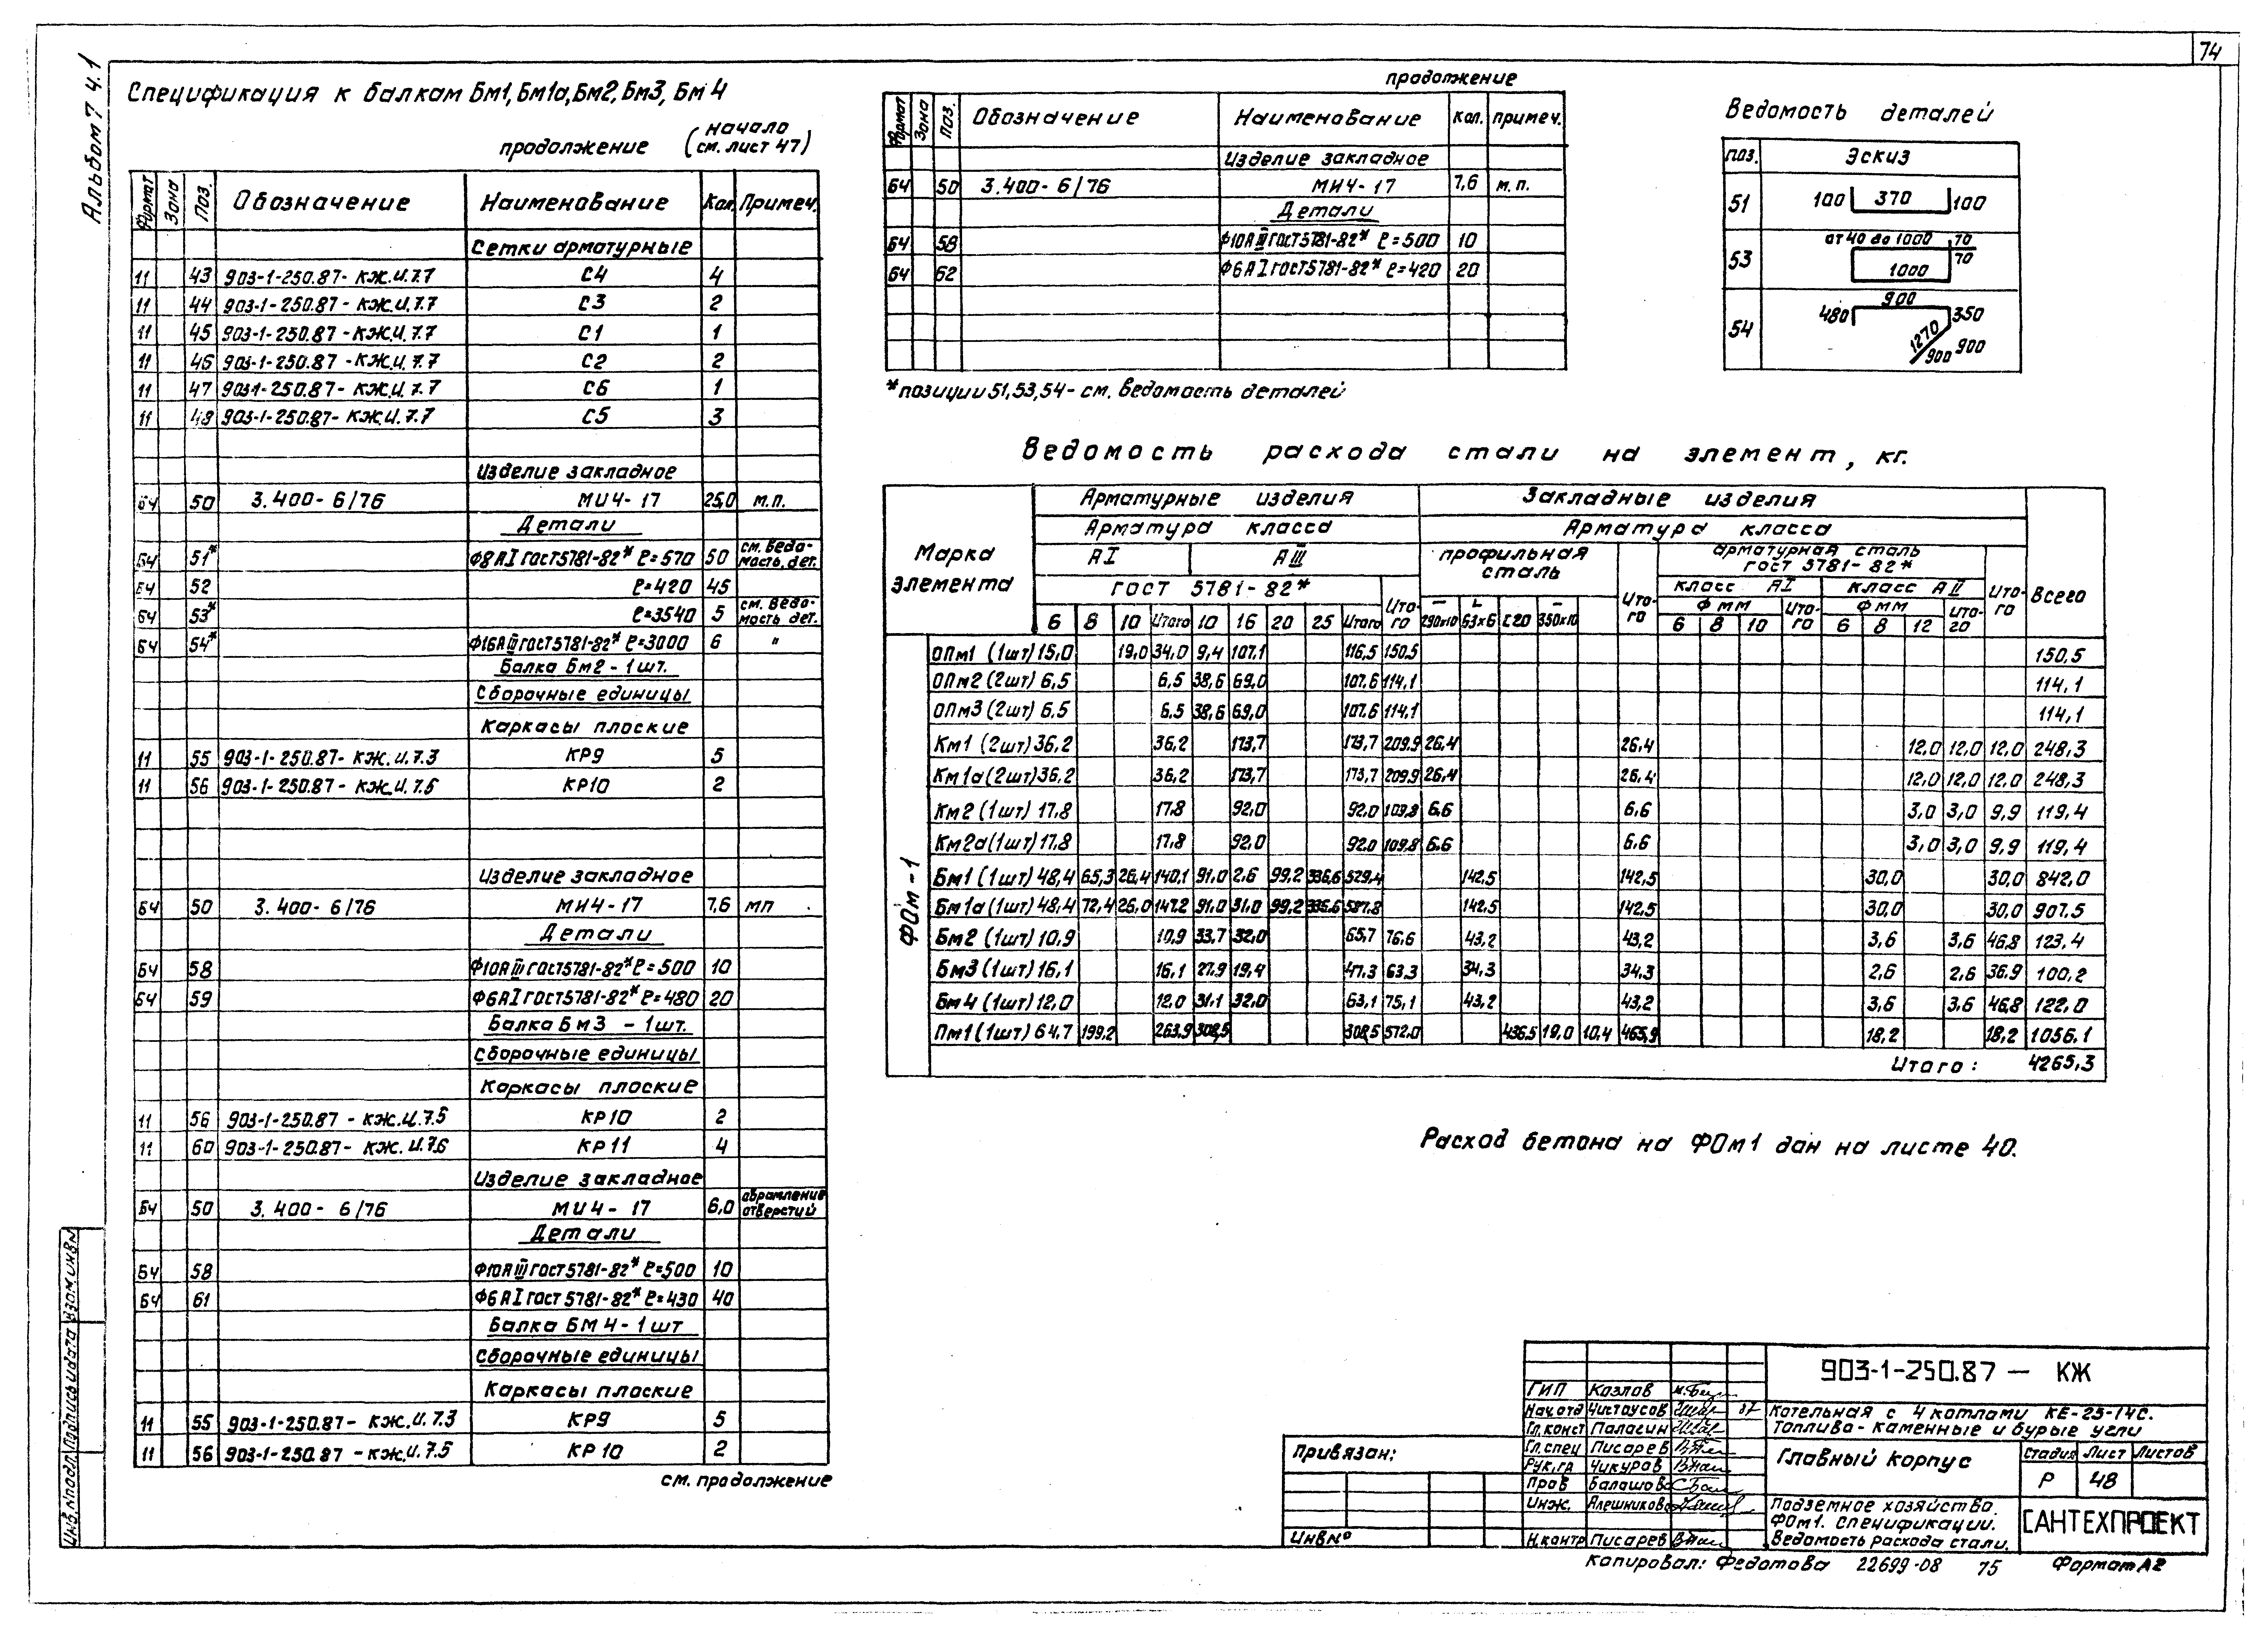 74
Альбом 7 ч.1
Спецификация к балкам Бм1, Бм1а, Бм2, Бм3, Бм 4
продолжение (начало см. лист 47)
Формат Зона Поз. Обозначение Наименование Кол. Примеч.
Сетки арматурные
11 43 903-1-250.87- КЖ.И.7.7 С4 4
11 44 903-1-250.87- КЖ.И.7.7 С3 2
11 45 903-1-250.87- КЖ.И.7.7 С1 1
11 46 903-1-250.87 -КЖ.И.7.7 С2 2
11 47 903-1-250.87- КЖ.И.7.7 С6 1
11 48 903-1-250.87- КЖ.И.7.7 С5 3
Изделие закладное
БЧ 50 3.400- 6/76 МИ4- 17 25,0 м.п.
Детали
БЧ 51* Ф8АI ГОСТ5781-82* ℓ=570 50 см. ведомость. дет.
БЧ 52 ℓ=420 45
БЧ 53* ℓ=3540 5 см. ведомость дет.
БЧ 54* Ф16АIII ГОСТ5781-82* ℓ=3000 6 "
Балка Бм2 - 1шт.
Сборочные единицы
Каркасы плоские
11 55 903-1-250.87- КЖ.И.7.3 КР9 5
11 56 903-1-250.87- КЖ.И.7.5 КР10 2
Изделие закладное
БЧ 50 3.400- 6/76 МИ4-17 7,6 мп
Детали
БЧ 58 Ф10АIII ГОСТ5781-82* ℓ=500 10
БЧ 59 Ф6АI ГОСТ5781-82* ℓ=480 20
Балка Бм3 - 1шт.
Сборочные единицы
Каркасы плоские
11 56 903-1-250.87 - КЖ.И.7.5 КР10 2
11 60 903-1-250.87- КЖ.И.7.6 КР11 4
Изделие закладное
БЧ 50 3.400- 6/76 МИ4- 17 6,0 обрамление отверстий
Детали
БЧ 58 Ф10АIII ГОСТ5781-82* ℓ=500 10
БЧ 61 Ф6АI ГОСТ5781-82* ℓ=430 40
Балка БМ4-1шт
Сборочные единицы
Каркасы плоские
11 55 903-1-250.87- КЖ.И.7.3 КР9 5
11 56 903-1-250.87 -КЖ.И.7.5 КР10 2
см. продолжение
продолжение
Формат Зона Поз. Обозначение Наименование Кол. примеч.
Изделие закладное
БЧ 50 3.400- 6/76 МИ4-17 7,6 м.п.
Детали
БЧ 58 Ф10АIII ГОСТ5781-82* ℓ=500 10
БЧ 62 Ф6АI ГОСТ5781-82* ℓ=420 20
*позиции 51,53,54- см. ведомость деталей
Ведомость деталей
поз. Эскиз
51 100 370 100
53 от 40 до 1000 70 70 1000
54 480 900 350 1270 900 900
Ведомость расхода стали на элемент, кг.
Марка элемента
Арматурные изделия Закладные изделия Всего
Арматура класса Арматура класса
АI АIII профильная сталь Итого арматурная сталь ГОСТ 5781-82* Итого
ГОСТ 5781-82* Итого класс АI класс АII
ф мм Итого ф мм Итого
6 8 10 Итого 10 16 20 25 Итого -290х10 L63х6 [20 -350х10 6 8 10 6 8 12 20
ФОм-1
ОПм1 (1шт) 15,0 19,0 34,0 9,4 107,1 116,5 150,5 150,5
ОПм2 (2шт) 6,5 6,5 38,6 69,0 107,6 114,1 114,1
ОПм3 (2шт) 6,5 6,5 38,6 69,0 107,6 114,1 114,1
Км1 (2шт) 36,2 36,2 173,7 173,7 209,9 26,4 26,4 12,0 12,0 12,0 248,3
Км1а (2шт) 36,2 36,2 173,7 173,7 209,9 26,4 26,4 12,0 12,0 12,0 248,3
Км2 (1шт) 17,8 17,8 92,0 92,0 109,8 6,6 6,6 3,0 3,0 9,9 119,4
Км2а (1шт) 17,8 17,8 92,0 92,0 109,8 6,6 6,6 3,0 3,0 9,9 119,4
Бм1 (1шт) 48,4 65,3 26,4 140,1 91,0 2,6 99,2 336,6 529,4 142,5 142,5 30,0 30,0 842,0
Бм1а (1шт) 48,4 72,4 26,0 147,2 91,0 31,0 99,2 336,6 587,8 142,5 142,5 30,0 30,0 907,5
Бм2 (1шт) 10,9 10,9 33,7 32,0 65,7 76,6 43,2 43,2 3,6 3,6 46,8 123,4
Бм3 (1шт) 16,1 16,1 27,9 19,4 47,3 63,3 34,3 34,3 2,6 2,6 36,9 100,2
Бм4 (1шт) 12,0 12,0 31,1 32,0 63,1 75,1 43,2 43,2 3,6 3,6 46,8 122,0
Пм1 (1шт) 64,7 199,2 263,9 308,5 308,5 572,0 436,5 19,0 10,4 465,9 18,2 18,2 1056,1
Итого: 4265,3
Расход бетона на ФОм1 дан на листе 40.
903-1-250.87 — КЖ
ГИП Козлов
Нач.отд Чистоусов 87
Гл.конст Паласин
Гл.спец Писарев
Рук.гр Чикуров
Пров Балашова
Инж. Алешникова
Н.контр Писарев
Котельная с 4 котлами КЕ-25-14С.
Топливо- каменные и бурые угли
Главный корпус
Стадия Лист Листов
Р 48
Подземное хозяйство.
ФОм1. Спецификации.
Ведомость расхода стали.
САНТЕХПРОЕКТ
Привязан:
Инв№
Копировал: Федотова 22699-08 75 Формат А2
Инв.№подл. Подпись и дата Взам.инв№